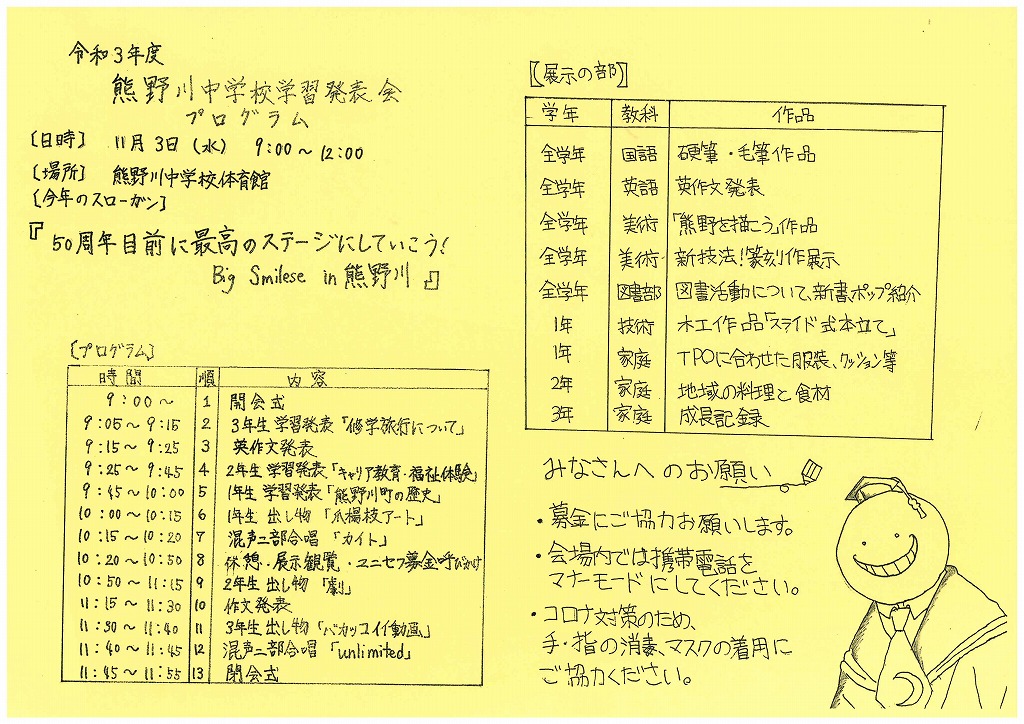 令和3年度
熊野川中学校学習発表会
プログラム
〔日時〕 11月3日(水) 9:00~12:00
〔場所〕 熊野川中学校体育館
〔今年のスローガン〕
『50周年目前に最高のステージにしていこう!
Big Smilese in 熊野川』
〔プログラム〕
時間 順 内容
9:00~ 1 開会式
9:05~9:15 2 3年生 学習発表「修学旅行について」
9:15~9:25 3 英作文発表
9:25~9:45 4 2年生 学習発表「キャリア教育・福祉体験」
9:45~10:00 5 1年生 学習発表「熊野川町の歴史」
10:00~10:15 6 1年生 出し物「爪楊枝アート」
10:15~10:20 7 混声二部合唱「カイト」
10:20~10:50 8 休憩・展示観覧・ユニセフ募金呼びかけ
10:50~11:15 9 2年生 出し物「劇」
11:15~11:30 10 作文発表
11:30~11:40 11 3年生 出し物「バカッコイイ動画」
11:40~11:45 12 混声二部合唱「unlimited」
11:45~11:55 13 閉会式
【展示の部】
学年 教科 作品
全学年 国語 硬筆・毛筆作品
全学年 英語 英作文発表
全学年 美術 「熊野を描こう」作品
全学年 美術 新技法!篆刻作展示
全学年 図書部 図書活動について、新書、ポップ紹介
1年 技術 木工作品「スライド式本立て」
1年 家庭 TPOに合わせた服装、クッション等
2年 家庭 地域の料理と食材
3年 家庭 成長記録
みなさんへのお願い
・募金にご協力お願いします。
・会場内では携帯電話を
マナーモードにしてください。
・コロナ対策のため、
手・指の消毒、マスクの着用に
ご協力ください。